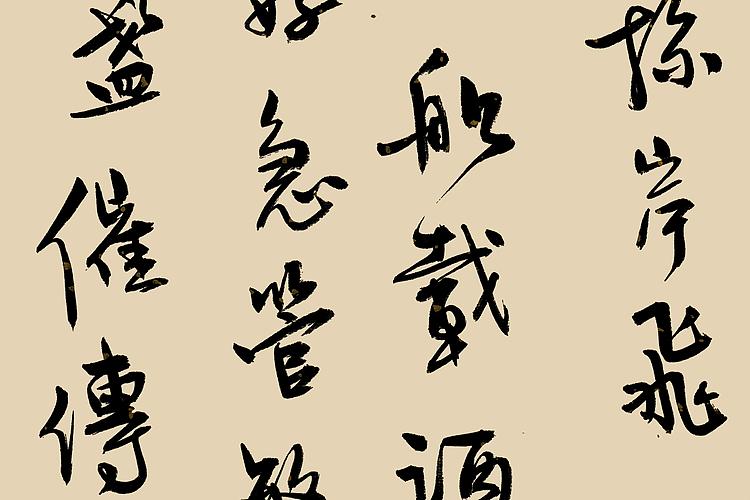 掠岸飛
船載酒
好急管繁
盞催傳